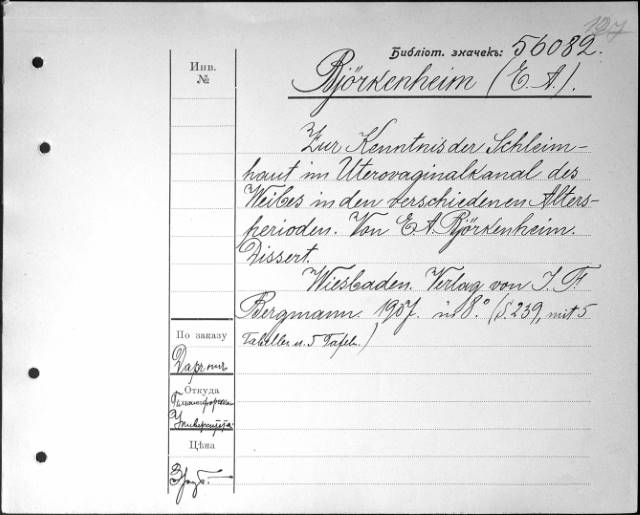 127
Библіот. значекъ: 56082.
Инв.
№
Björkenheim (E. A.).
Zur Kenntnis der Schleim-
haut im Uterovaginalkanal des
Weibes in den verschiedenen Alters-
perioden. Von E. A. Björkenheim.
Dissert.
Wiesbaden. Verlag von J. F.
Bergmann. 1907. in 8°. (S. 239, mit 5
Tabellen u. 5 Tafeln.)
По заказу
Даръ отъ
Откуда
Гельсингфорскаго
Университета.
Цѣна
3 руб. —